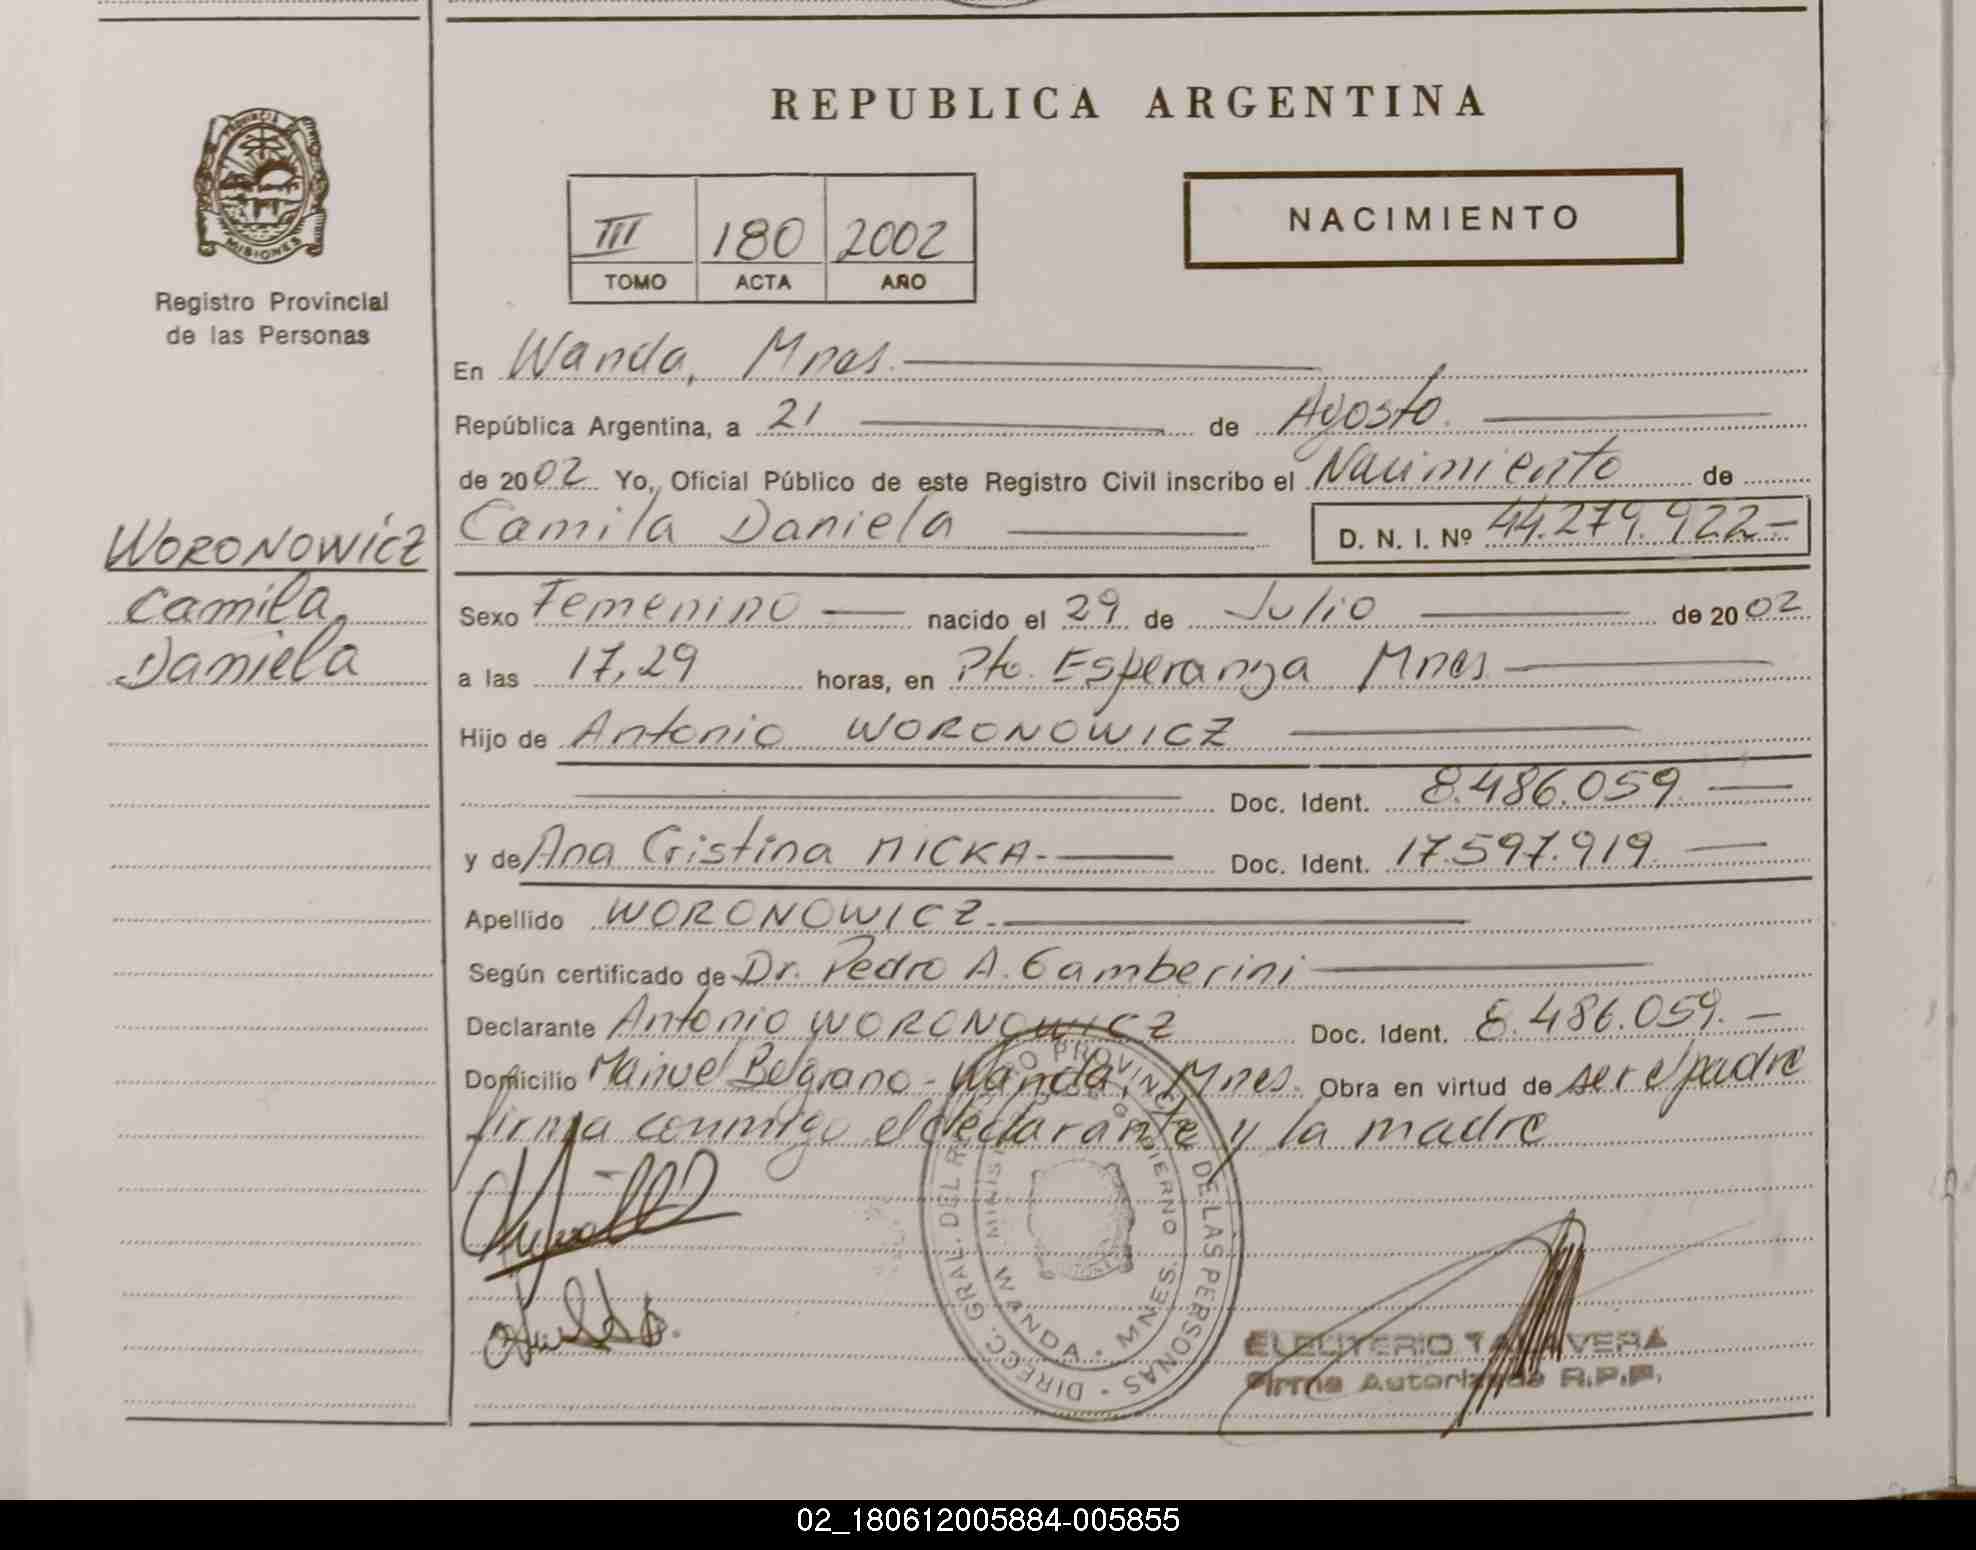 REPUBLICA ARGENTINA
PROVINCIA DE
MISIONES
Registro Provincial
de las Personas
III 180 2002
TOMO ACTA AÑO
NACIMIENTO
En Wanda, Mnes.
República Argentina, a 21 de Agosto.
de 2002 Yo, Oficial Público de este Registro Civil inscribo el Nacimiento de
Camila Daniela D. N. I. Nº 44.279.922-
WORONOWICZ
Camila
Daniela
Sexo Femenino nacido el 29 de Julio de 2002
a las 17,29 horas, en Pto. Esperanza Mnes.
Hijo de Antonio WORONOWICZ
Doc. Ident. 8.486.059
y de Ana Cristina MICKA.- Doc. Ident. 17.597.919
Apellido WORONOWICZ.
Según certificado de Dr. Pedro A. Gamberini
Declarante Antonio WORONOWICZ Doc. Ident. 8.486.059.-
Domicilio Manuel Belgrano - Wanda, Mnes. Obra en virtud de ser el padre
firma conmigo el declarante y la madre
DIRECC. GRAL. DEL REGISTRO PROVINCIAL DE LAS PERSONAS
MINIST. DE GOBIERNO
WANDA - MNES.
ELEUTERIO TALAVERA
Firma Autorizada R.P.P.
02_180612005884-005855